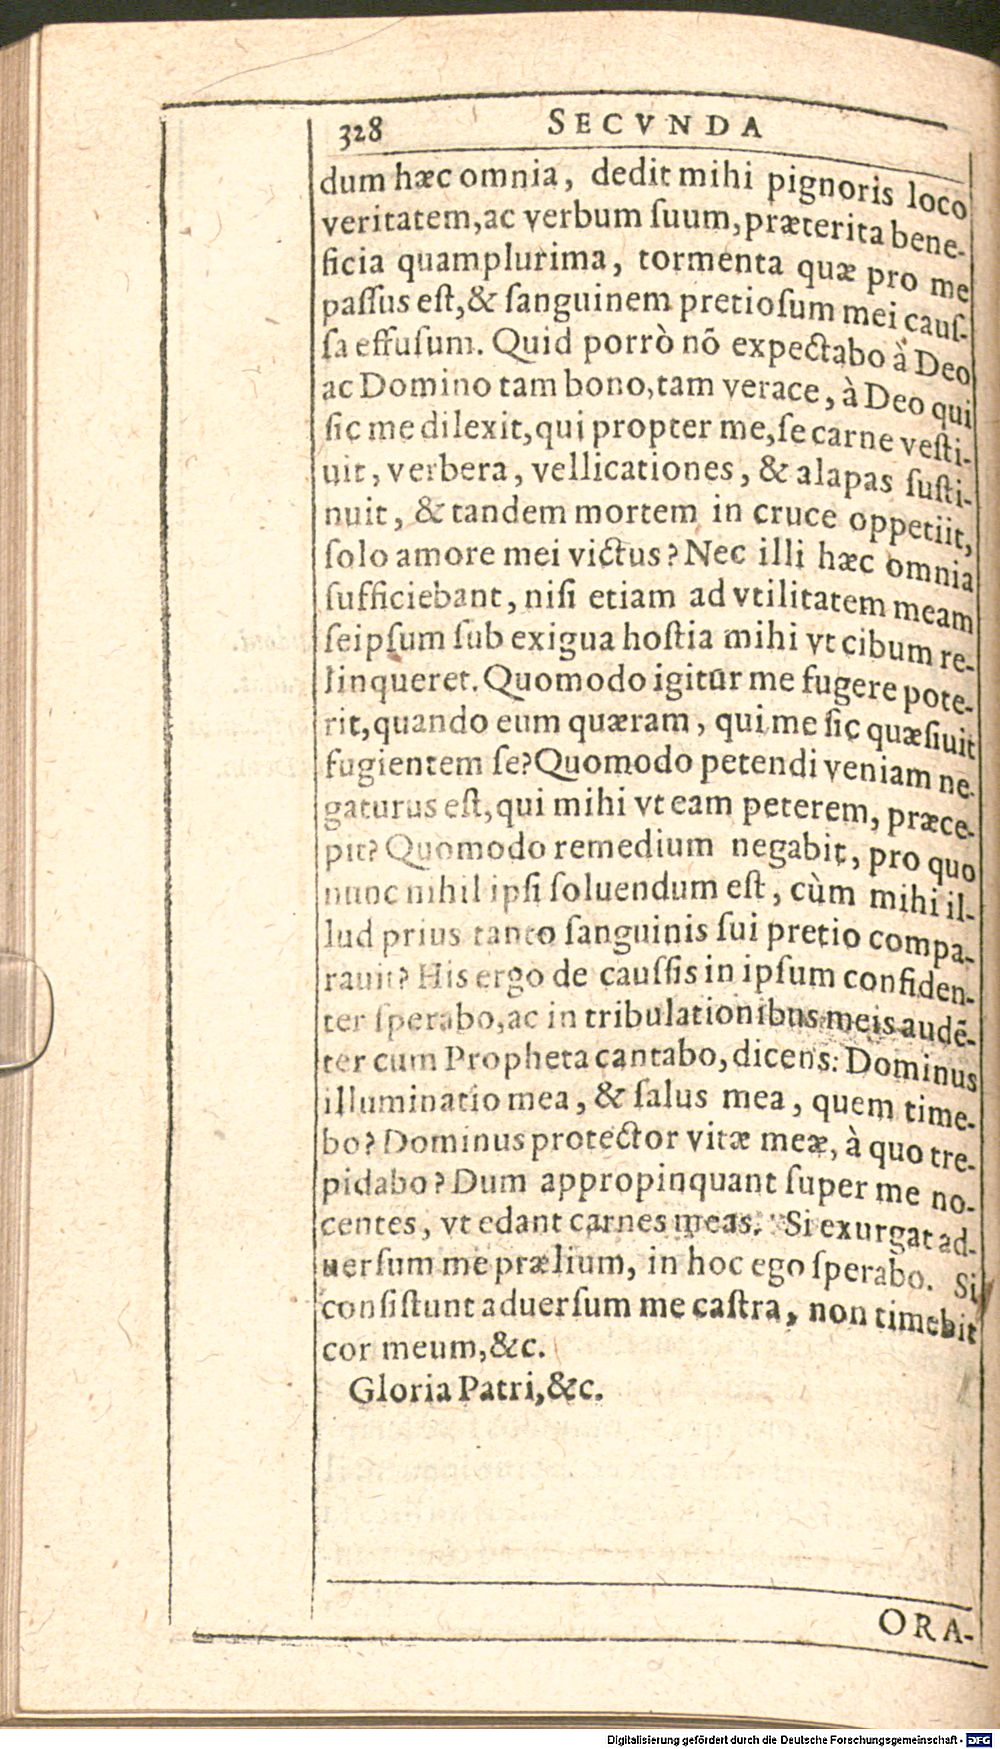 328 SECVNDA
dum hæc omnia, dedit mihi pignoris loco
veritatem, ac verbum ſuum, præterita bene-
ficia quamplurima, tormenta quæ pro me
paſſus eſt, & ſanguinem pretioſum mei cauſ-
ſa effuſum. Quid porrò nō expectabo à Deo
ac Domino tam bono, tam verace, à Deo qui
ſic me dilexit, qui propter me, ſe carne veſti-
uit, verbera, vellicationes, & alapas ſuſti-
nuit, & tandem mortem in cruce oppetiit,
ſolo amore mei victus? Nec illi hæc omnia
ſufficiebant, niſi etiam ad vtilitatem meam
ſeipſum ſub exigua hoſtia mihi vt cibum re-
linqueret. Quomodo igitur me fugere pote-
rit, quando eum quæram, qui me ſic quæſiuit
fugientem ſe? Quomodo petendi veniam ne-
gaturus eſt, qui mihi vt eam peterem, præce-
pit? Quomodo remedium negabit, pro quo
nunc nihil ipſi ſoluendum eſt, cùm mihi il-
lud prius tanto ſanguinis ſui pretio compa-
rauit? His ergo de cauſſis in ipſum confiden-
ter ſperabo, ac in tribulationibus meis audē-
ter cum Propheta cantabo, dicens: Dominus
illuminatio mea, & ſalus mea, quem time-
bo? Dominus protector vitæ meæ, à quo tre-
pidabo? Dum appropinquant ſuper me no-
centes, vt edant carnes meas. Si exurgat ad-
uerſum me prælium, in hoc ego ſperabo. Si
conſiſtunt aduerſum me caſtra, non timebit
cor meum, &c.
Gloria Patri, &c.
ORA-
Digitalisierung gefördert durch die Deutsche Forschungsgemeinschaft - DFG